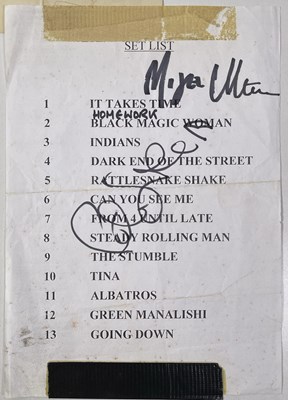 SET LIST
1 IT TAKES TIME
HOMEWORK
2 BLACK MAGIC WOMAN
3 INDIANS
4 DARK END OF THE STREET
5 RATTLESNAKE SHAKE
6 CAN YOU SEE ME
7 FROM 4 UNTIL LATE
8 STEADY ROLLING MAN
9 THE STUMBLE
10 TINA
11 ALBATROS
12 GREEN MANALISHI
13 GOING DOWN